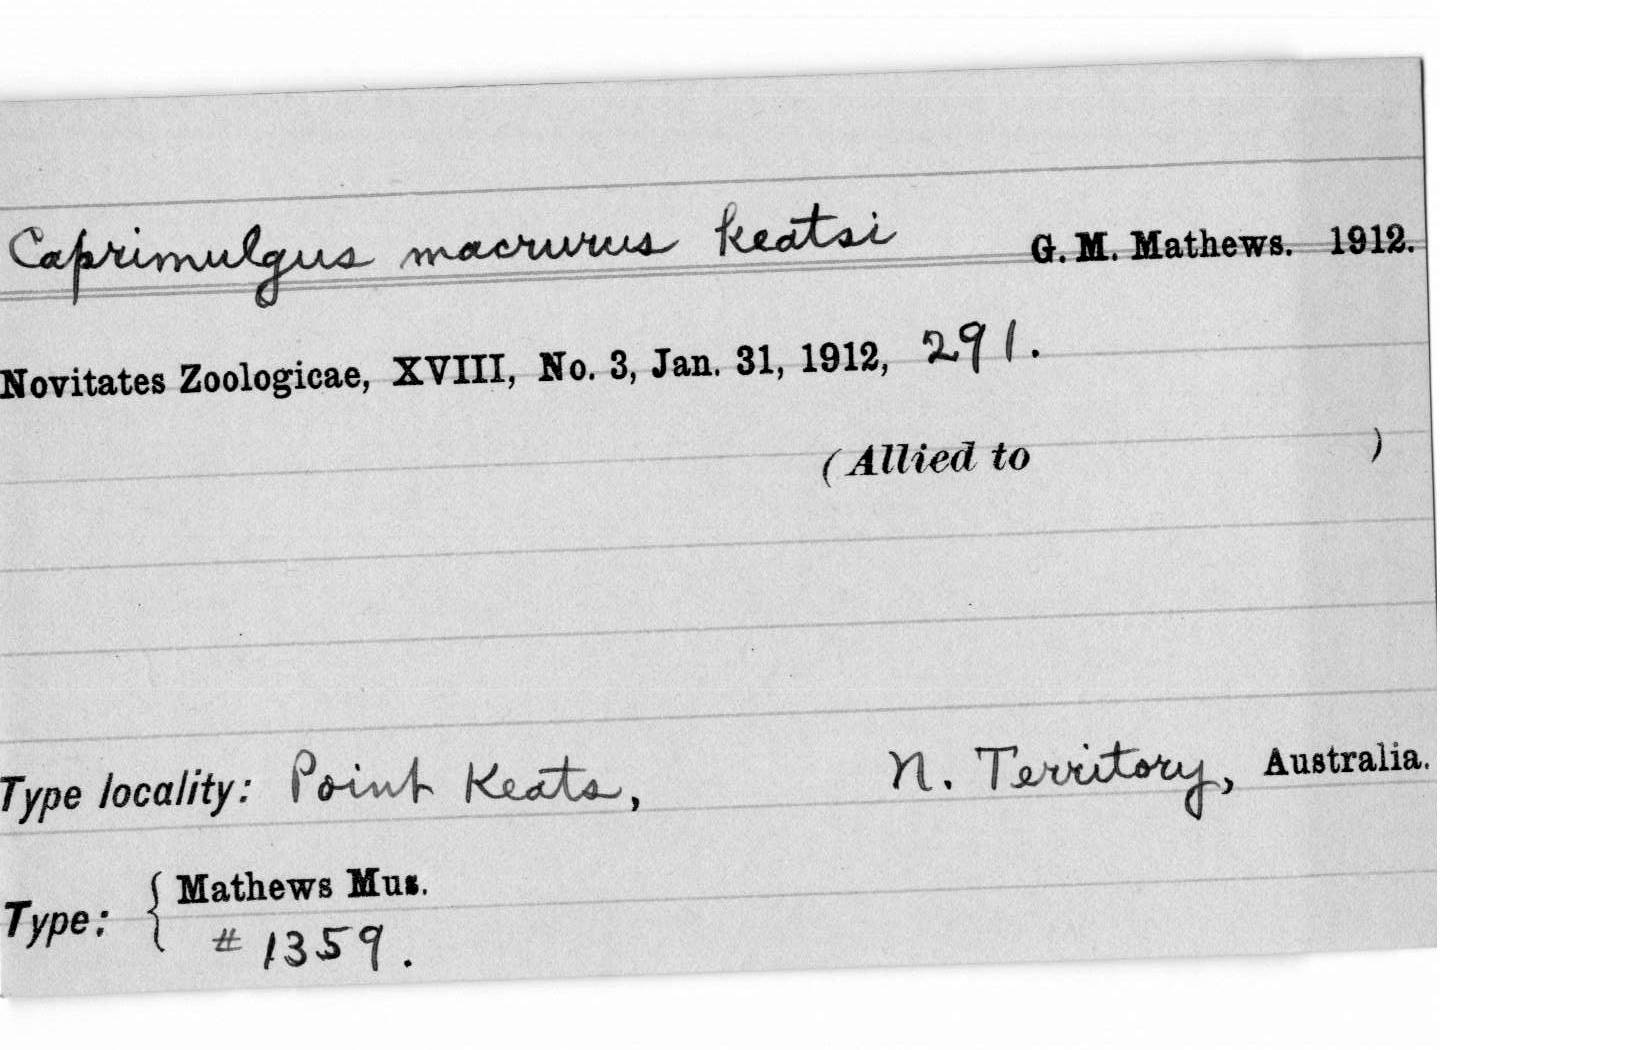 Caprimulgus macrurus keatsi G. M. Mathews. 1912.
Novitates Zoologicae, XVIII, No. 3, Jan. 31, 1912, 291.
(Allied to )
Type locality: Point Keats, N. Territory, Australia.
Type: { Mathews Mus.
# 1359.